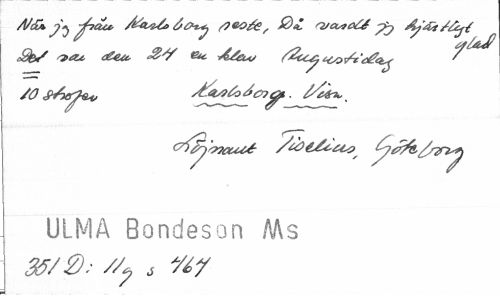 När jg från Karlsborg reste, Då vardt jg hjärtligt glad
Det var den 24 en klar Augustidag
10 strofer Karlsborgs Visn.
Löjtnant Tiselius, Göteborg
ULMA Bondeson Ms
351 D: 11g s 464